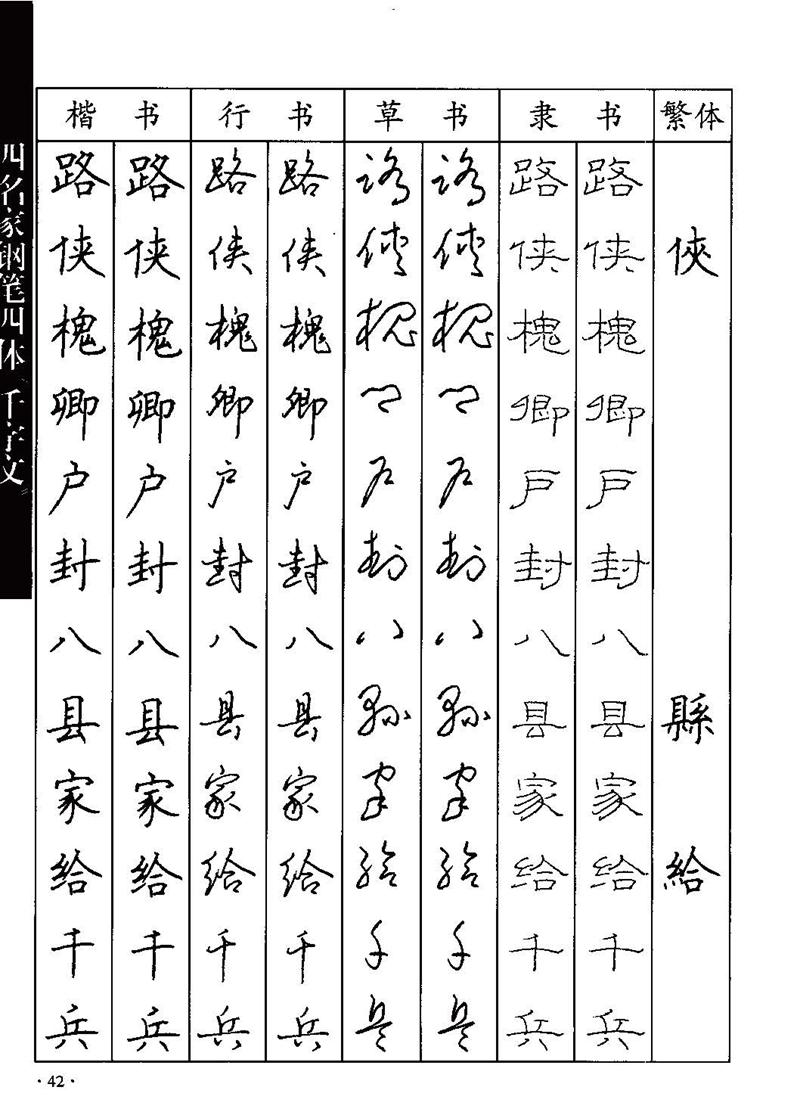 四名家钢笔四体《千字文》
楷书 行书 草书 隶书 繁体
路 路 路 路 路 路 路 路
侠 侠 侠 侠 侠 侠 侠 侠 俠
槐 槐 槐 槐 槐 槐 槐 槐
卿 卿 卿 卿 卿 卿 卿 卿
户 户 户 户 户 户 户 户
封 封 封 封 封 封 封 封
八 八 八 八 八 八 八 八
县 县 县 县 县 县 县 县 縣
家 家 家 家 家 家 家 家
给 给 给 给 给 给 给 给 給
千 千 千 千 千 千 千 千
兵 兵 兵 兵 兵 兵 兵 兵
·42·